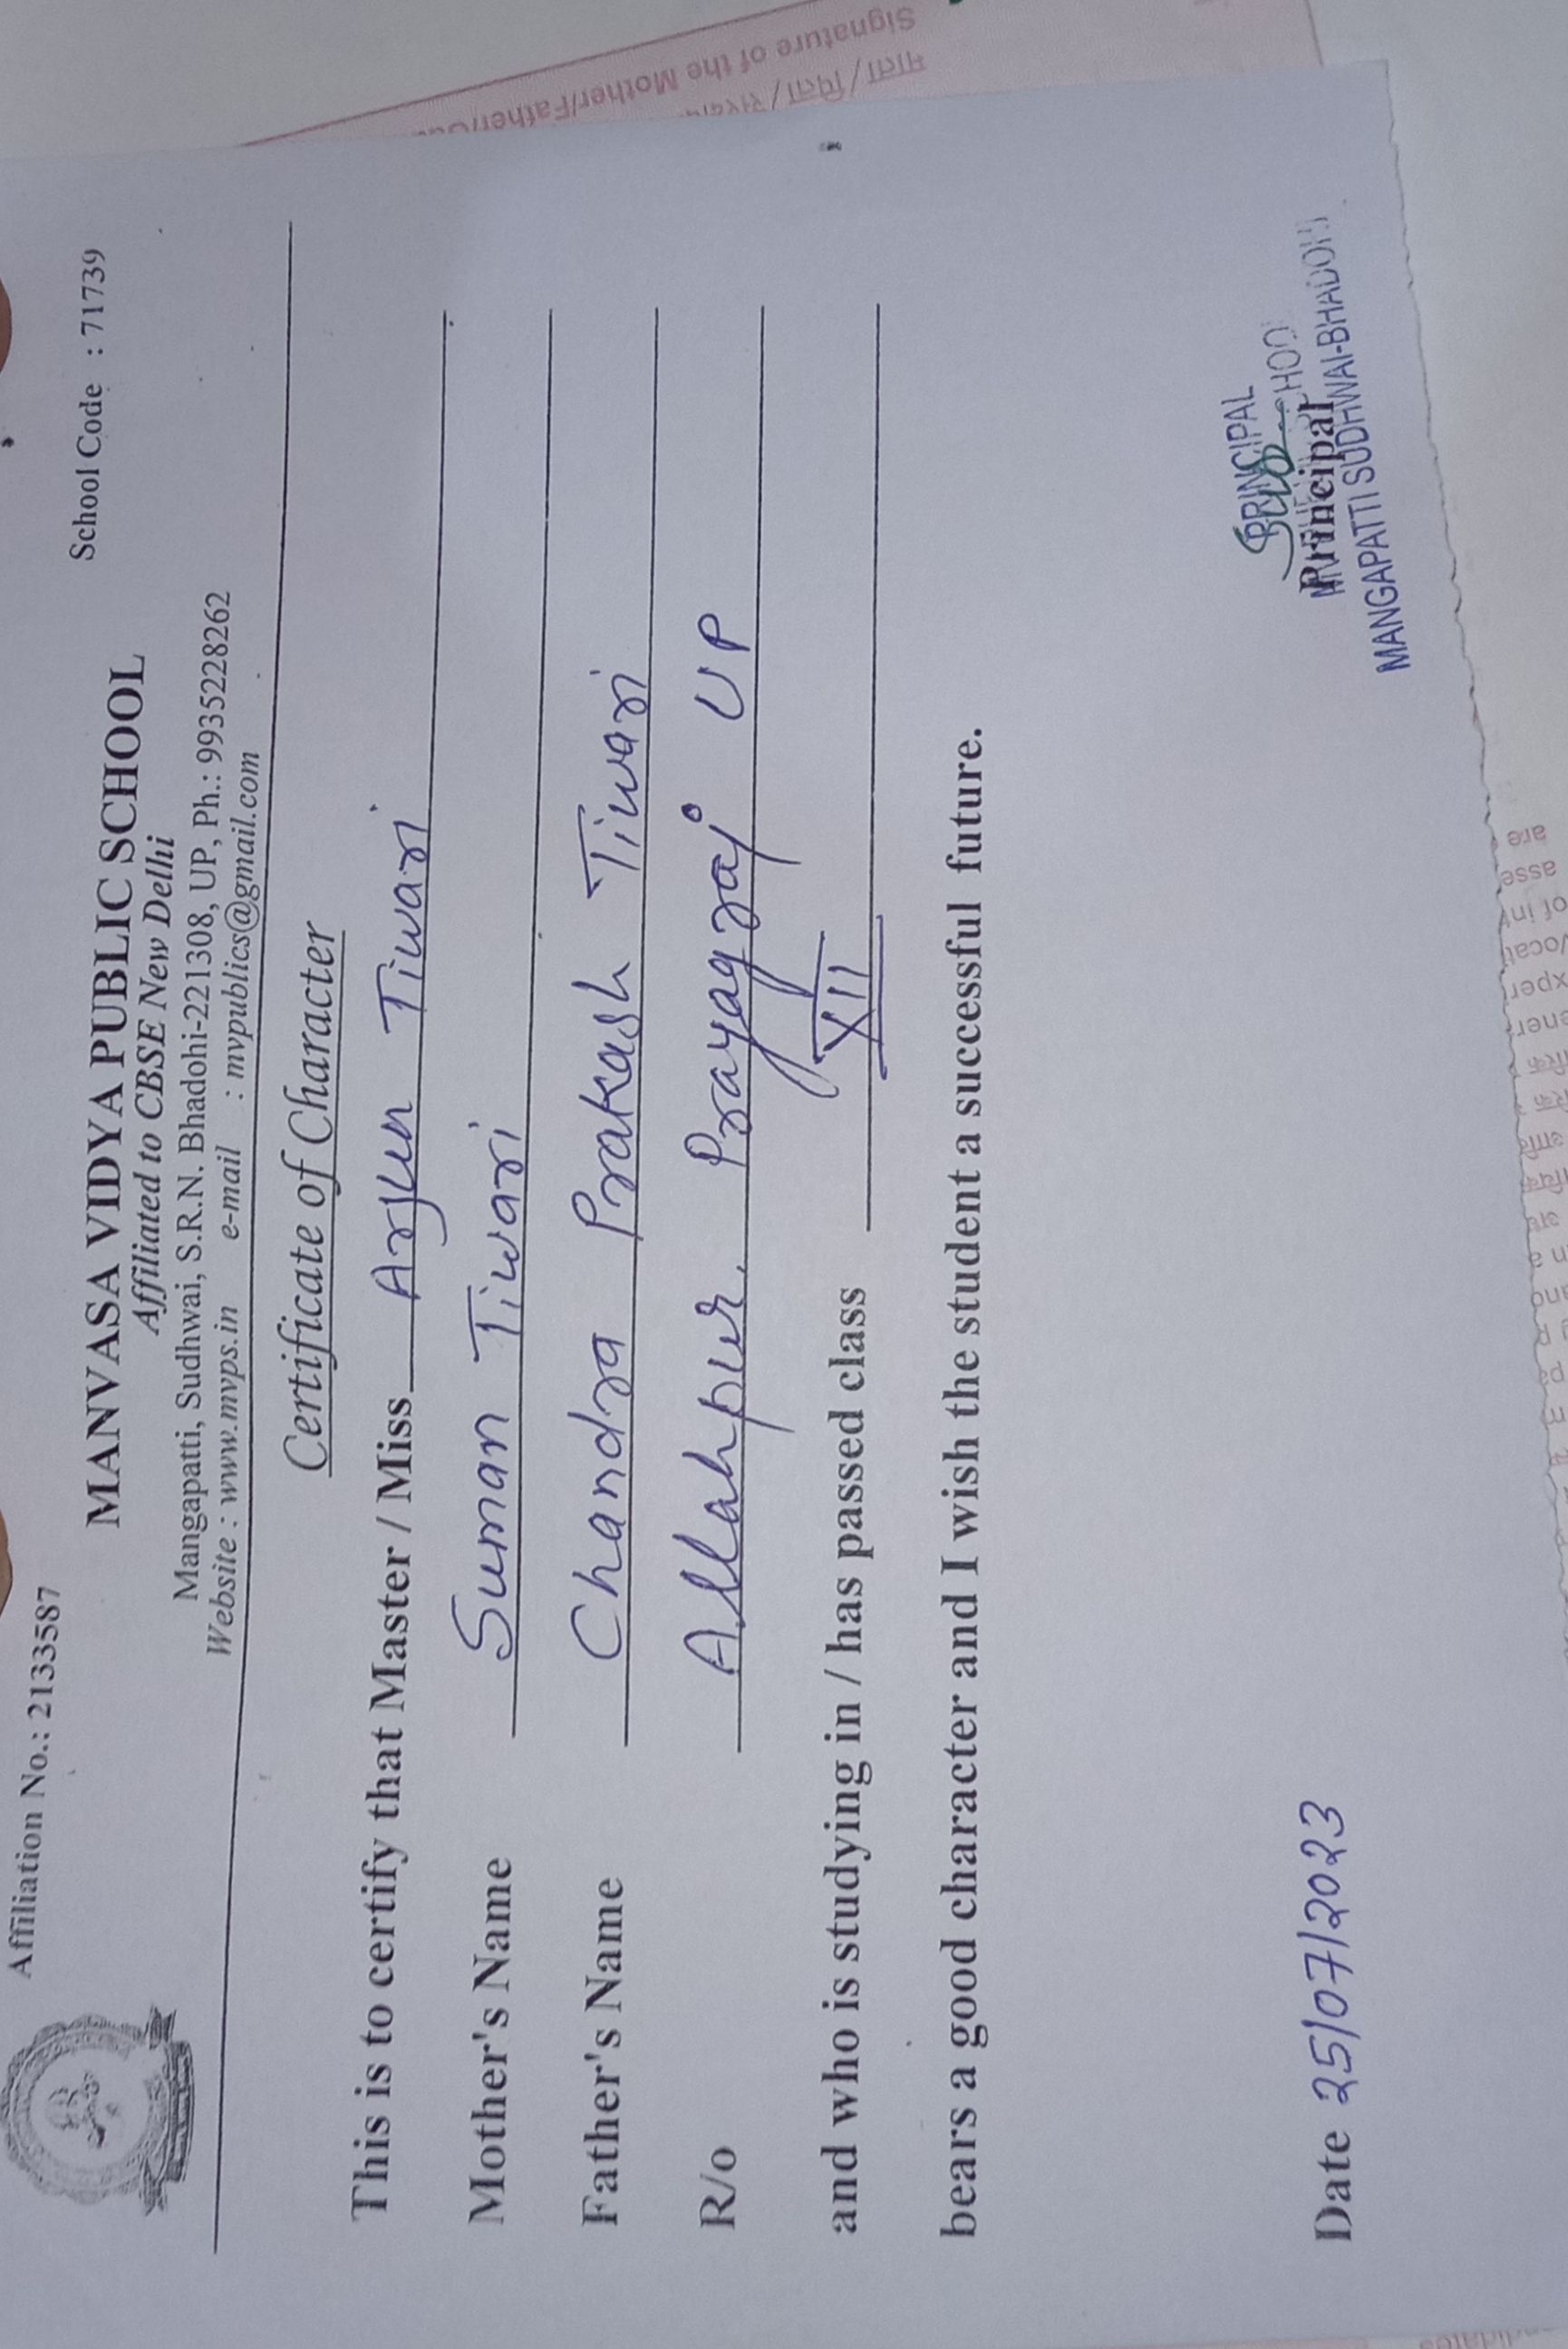 Affiliation No.: 2133587
School Code : 71739
MANVASA VIDYA PUBLIC SCHOOL
Affiliated to CBSE New Delhi
Mangapatti, Sudhwai, S.R.N. Bhadohi-221308, UP, Ph.: 9935228262
Website : www.mvps.in e-mail : mvpublics@gmail.com
Certificate of Character
This is to certify that Master / Miss Arjun Tiwari
Mother's Name Suman Tiwari
Father's Name Chandra Prakash Tiwari
R/o Allahpur, Prayagraj UP
and who is studying in / has passed class XII
bears a good character and I wish the student a successful future.
PRINCIPAL
Principal
MANGAPATTI SUDHWAI-BHADOHI
Date 25/07/2023
Signature of the Mother/Father/
माता/पिता/